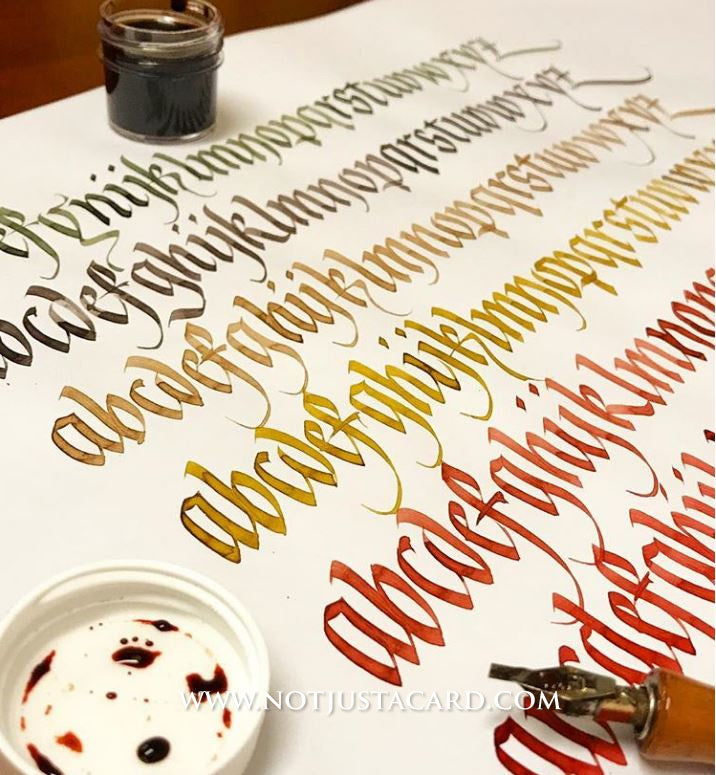 efghijklmnopqrstuvwxyz
abcdefghijklmnopqrstuvwxyz
abcdefghijklmnopqrstuvwxyz
abcdefghijklmnopqrstuvwx
abcdefghijklmnop
abcdefghij
WWW.NOTJUSTACARD.COM